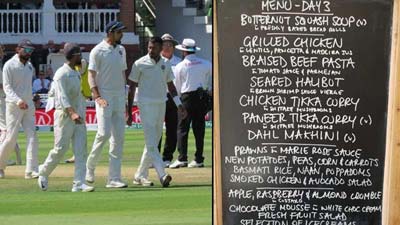 MENU - DAY 3
BUTTERNUT SQUASH SOUP (V)
+ FRESHLY BAKED BREAD ROLLS
GRILLED CHICKEN
+ LENTILS, PANCETTA & MADEIRA JUS
BRAISED BEEF PASTA
+ TOMATO SAUCE & PARMESAN
SEARED HALIBUT
+ BROWN SHRIMP SAUCE VIERGE
CHICKEN TIKKA CURRY
PANEER TIKKA CURRY (V)
DAHL MAKHINI (V)
PRAWNS + MARIE ROSE SAUCE
NEW POTATOES, PEAS, CORN & CARROTS
BASMATI RICE, NAAN, POPPADOMS
SMOKED CHICKEN & AVOCADO SALAD
APPLE, RASPBERRY & ALMOND CRUMBLE
+ CUSTARD
CHOCOLATE MOUSSE + WHITE CHOC CREAM
FRESH FRUIT SALAD
SELECTION OF ICECREAMS